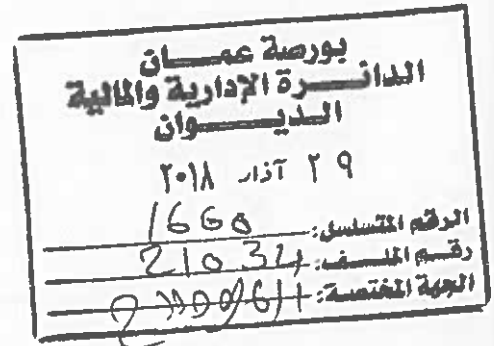 بورصة عمـــان
الدائــــرة الإدارية والمالية
الديـــــوان
٢٩ آذار ٢٠١٨
الرقم المتسلسل: 1660
رقـــم الملـــف: 21034
الجهة المختصة: